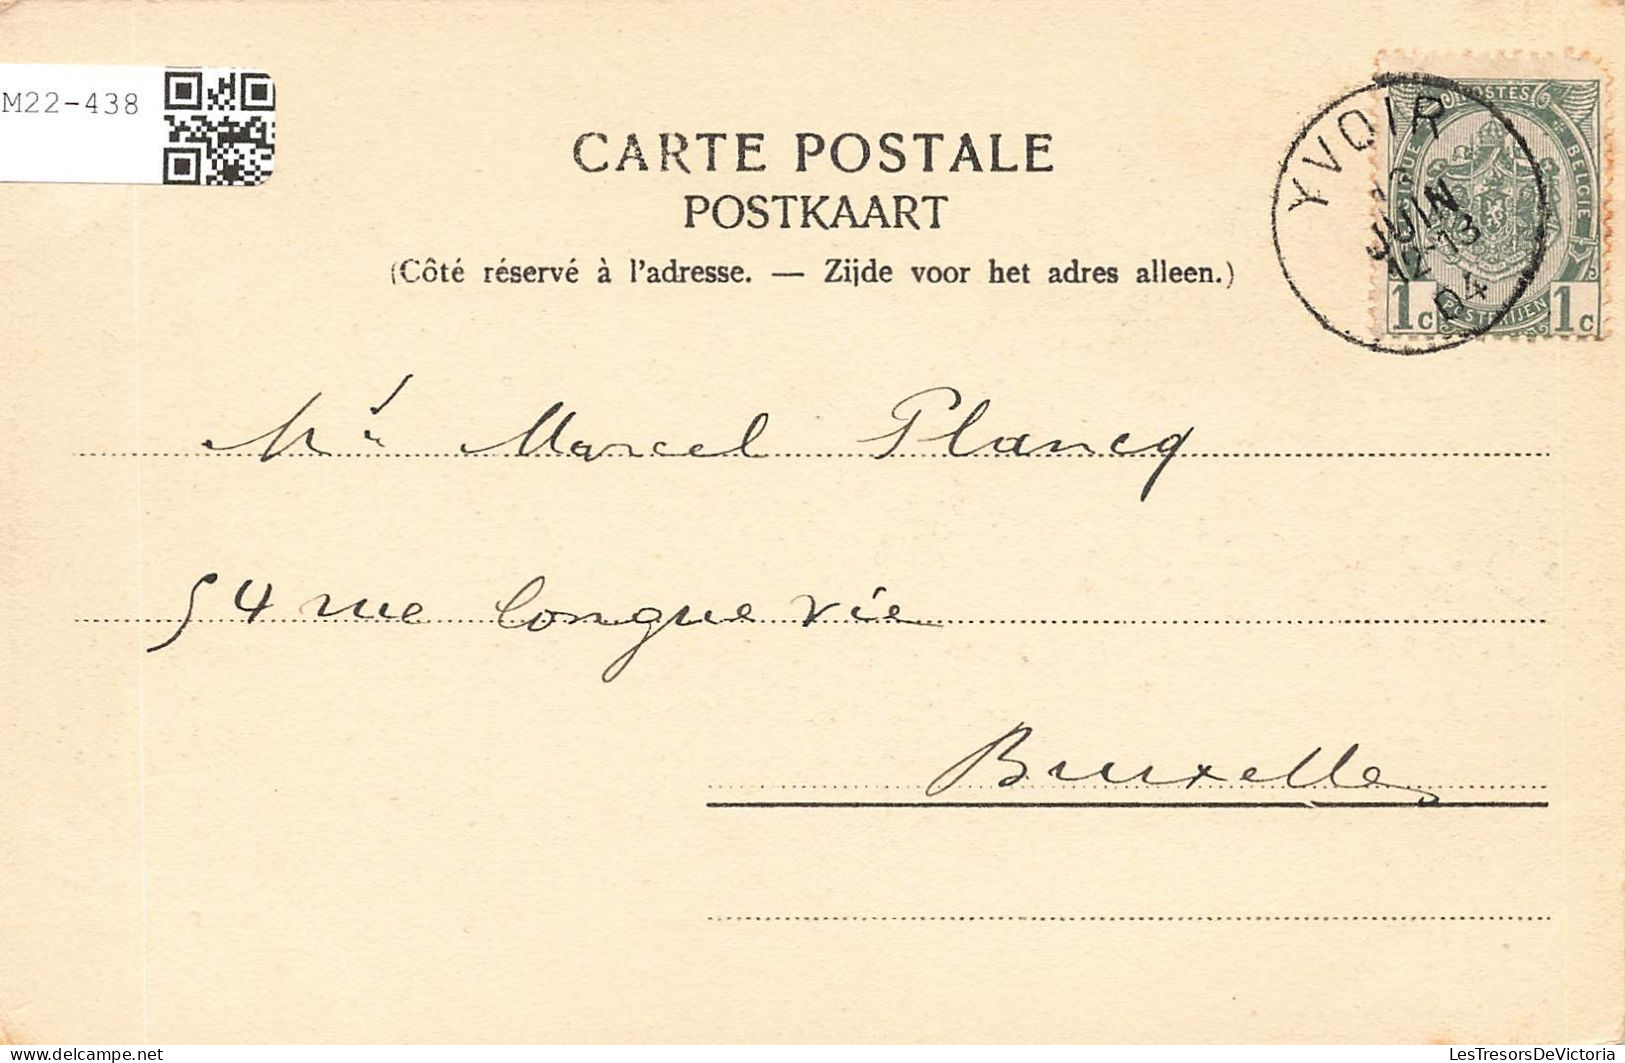 M22-438
CARTE POSTALE
POSTKAART
(Côté réservé à l'adresse. — Zijde voor het adres alleen.)
YVOIR
JUIN
12-13
04
POSTES
BELGIE
POSTERIJEN
1c 1c
Marcel Plancq
54 rue Longue vie
Bruxelles
LesTresorsDeVictoria
https://www.delcampe.net